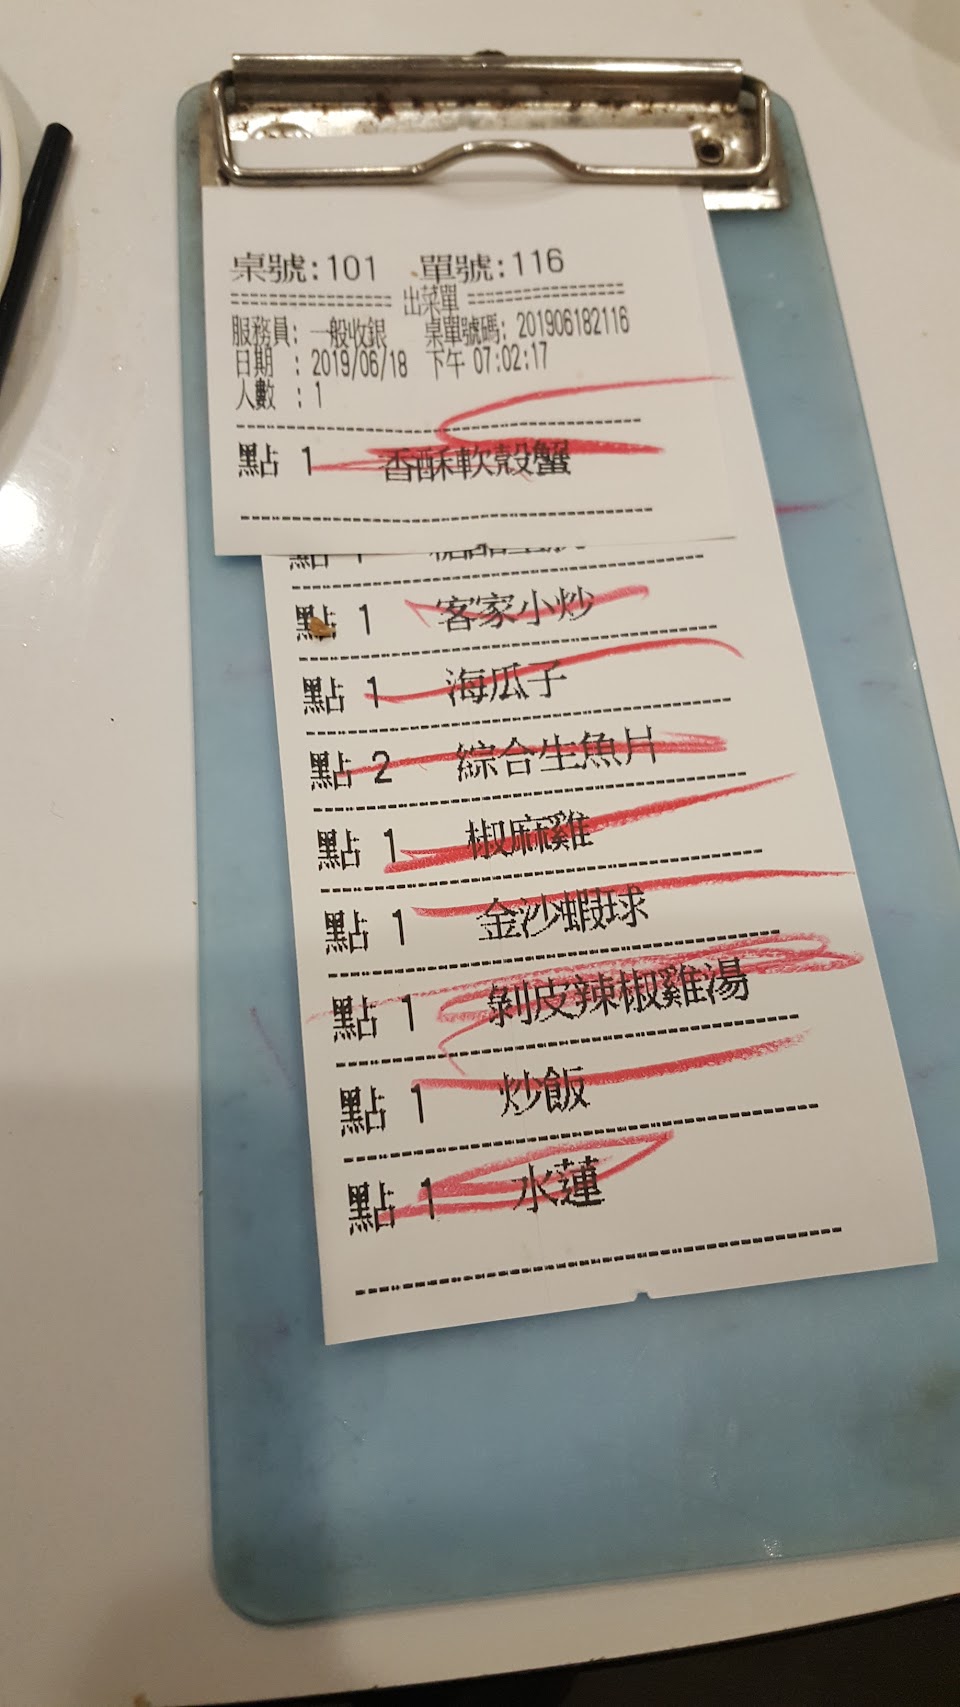 桌號:101 單號:116
================ 出菜單 ================
服務員: 一般收銀 桌單號碼: 201906182116
日期 : 2019/06/18 下午 07:02:17
人數 : 1
點 1 香酥軟殼蟹
點 1
點 1 客家小炒
點 1 海瓜子
點 2 綜合生魚片
點 1 椒麻雞
點 1 金沙蝦球
點 1 剝皮辣椒雞湯
點 1 炒飯
點 1 水蓮